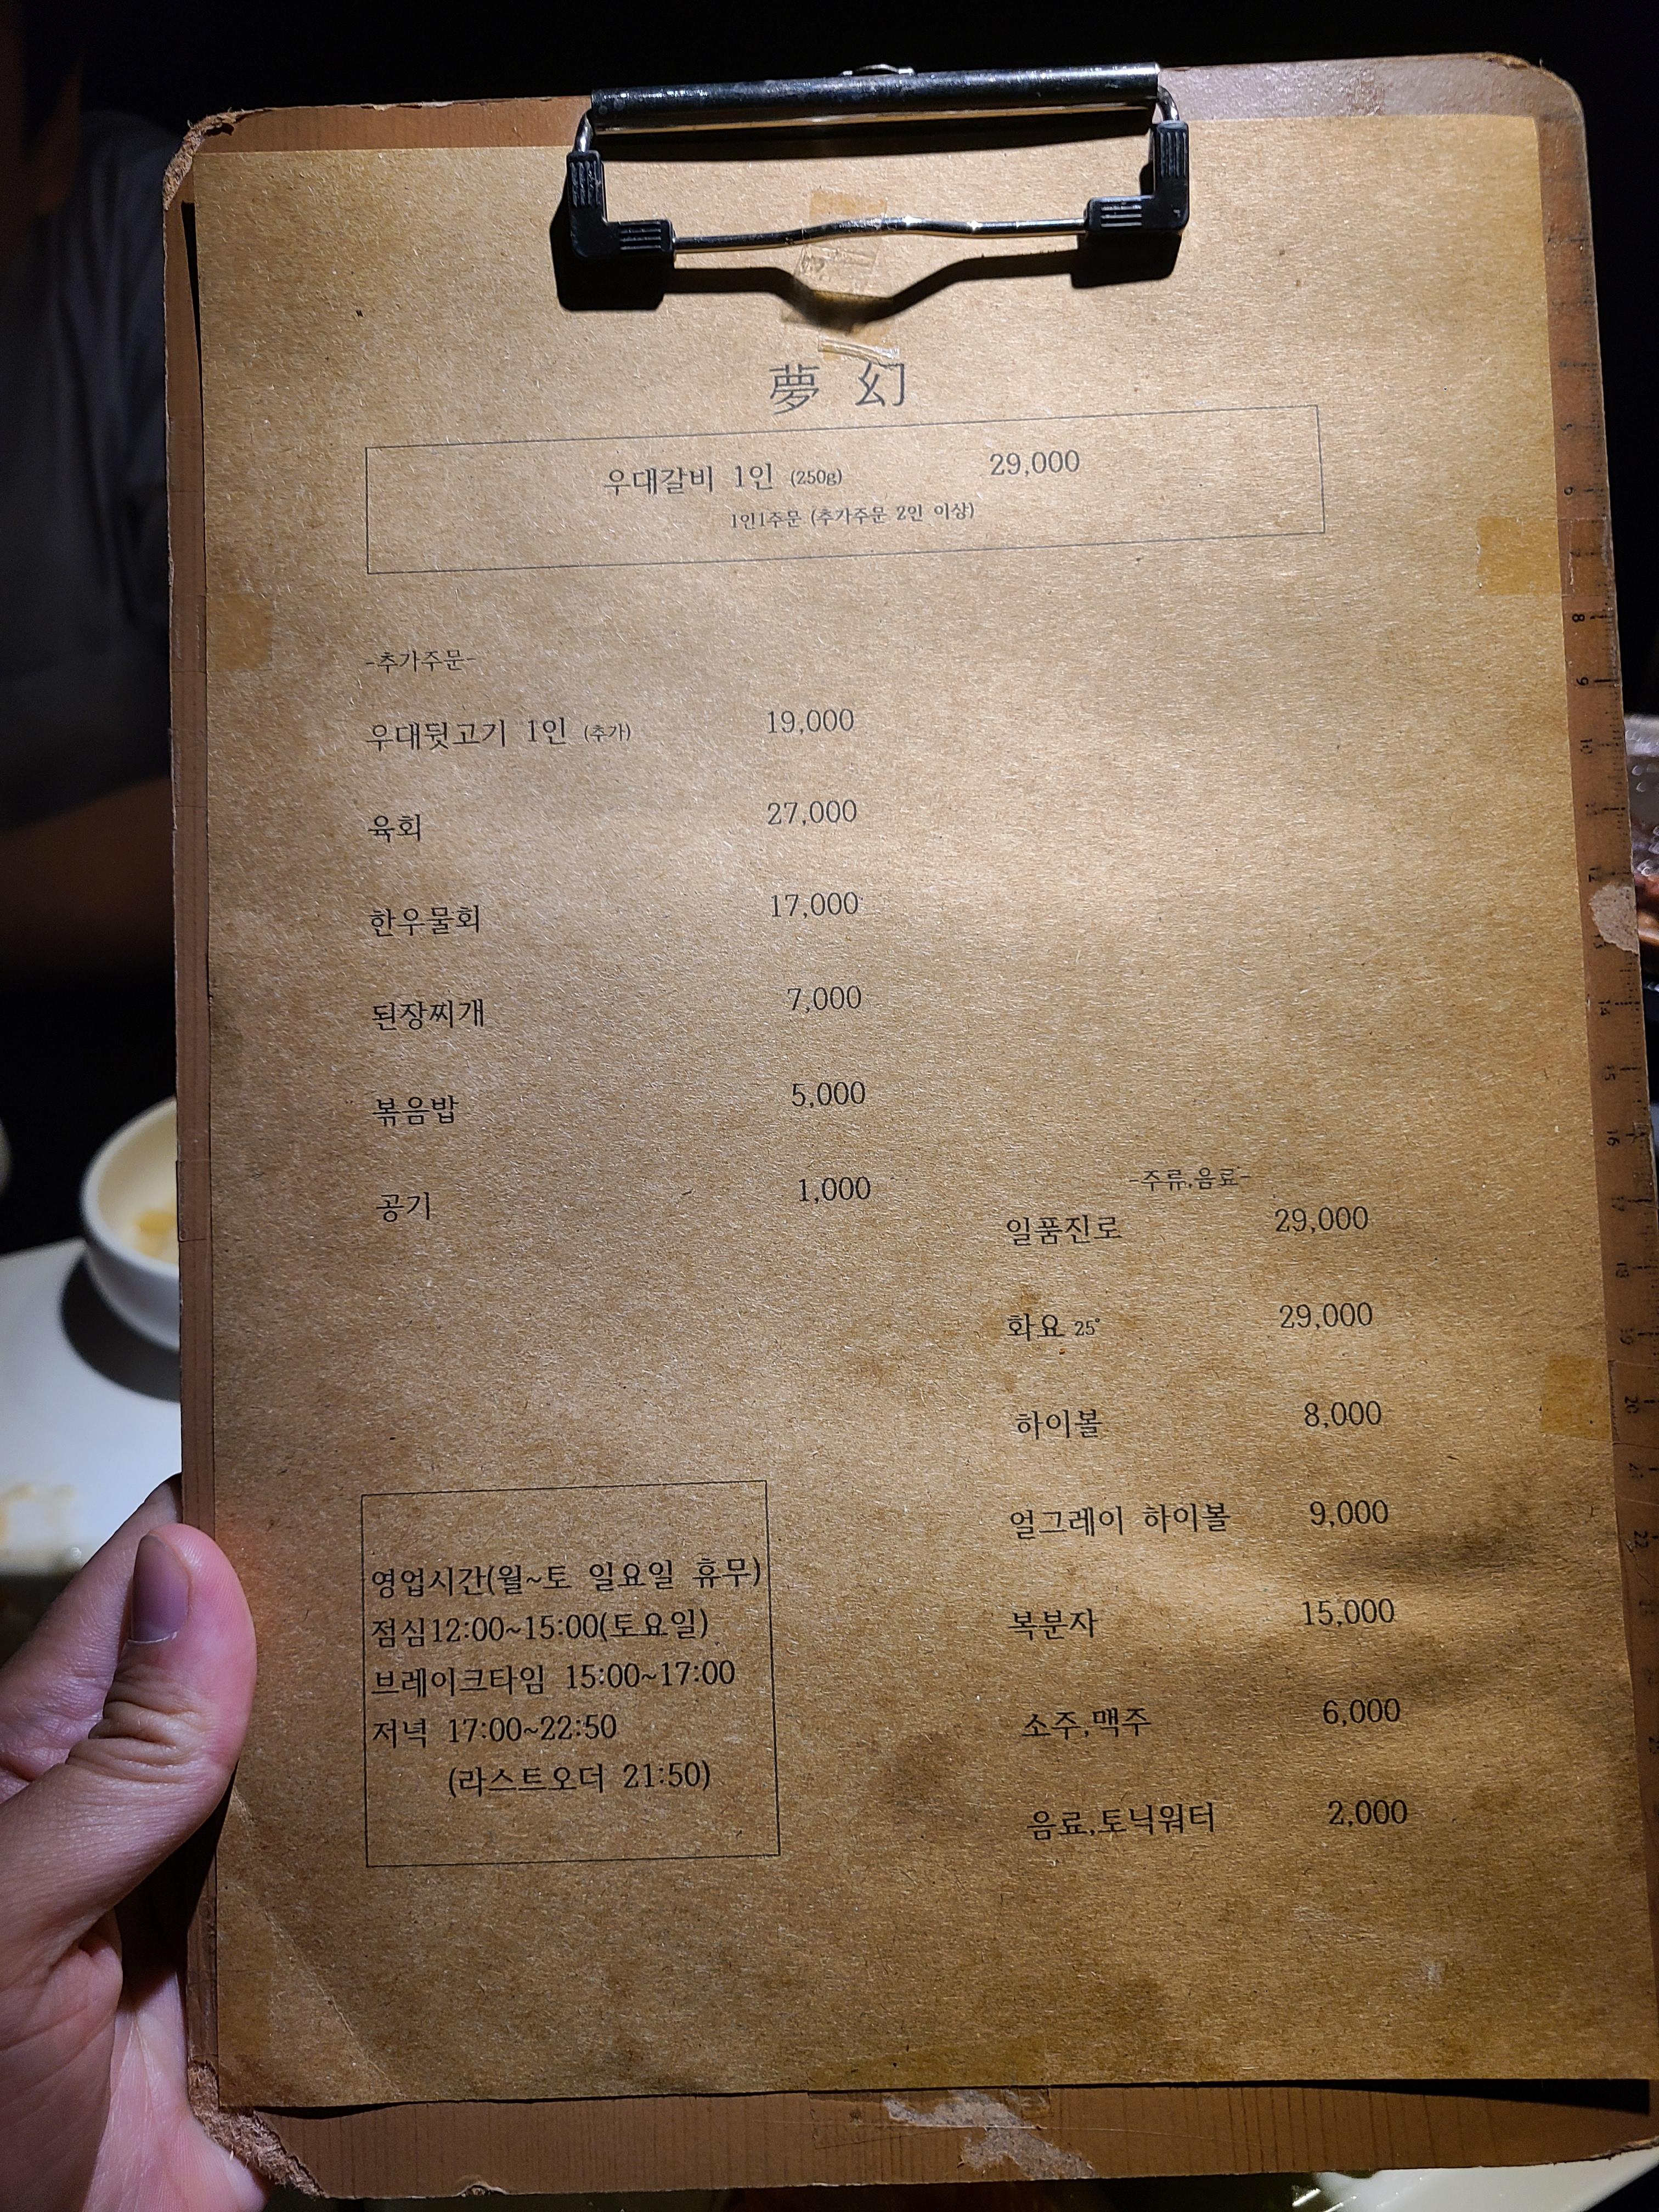 夢 幻
우대갈비 1인 (250g) 29,000
1인1주문 (추가주문 2인 이상)
-추가주문-
우대뒷고기 1인 (추가) 19,000
육회 27,000
한우물회 17,000
된장찌개 7,000
볶음밥 5,000
공기 1,000
-주류,음료-
일품진로 29,000
화요 25° 29,000
하이볼 8,000
얼그레이 하이볼 9,000
복분자 15,000
소주,맥주 6,000
음료,토닉워터 2,000
영업시간(월~토 일요일 휴무)
점심12:00~15:00(토요일)
브레이크타임 15:00~17:00
저녁 17:00~22:50
(라스트오더 21:50)